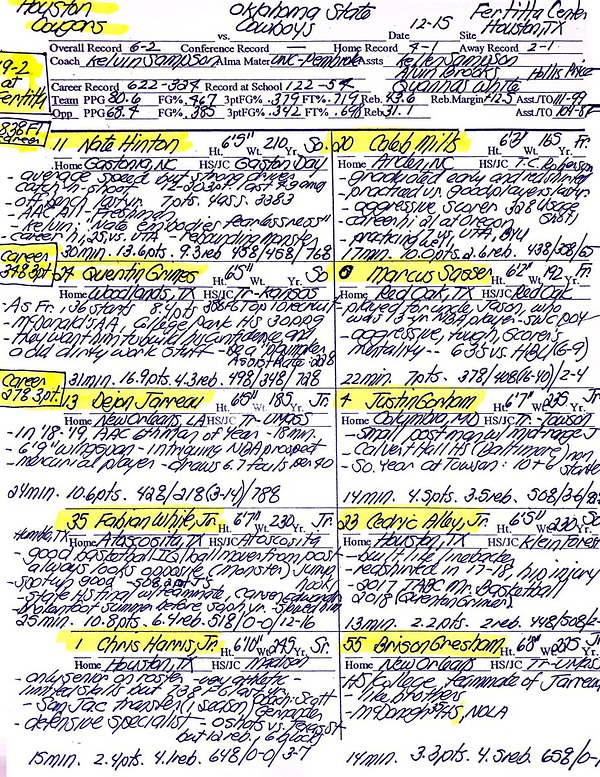 Houston Cougars
Oklahoma State Cowboys
Fertitta Center
Houston, TX
vs. Date 12-15 Site
Overall Record 6-2 Conference Record — Home Record 4-1 Away Record 2-1
Coach Kelvin Sampson Alma Mater UNC-Pembroke Assts Kellen Sampson
Alvin Brooks Hollis Price
Quannas White
19-2 at Fertitta
Career Record 622-334 Record at School 122-54
Team PPG 80.6 FG% .467 3ptFG% .379 FT% .719 Reb. 43.6 Reb.Margin +12.5 Asst./TO 111-99
Opp PPG 68.4 FG% .385 3ptFG% .342 FT% .698 Reb. 31.1 Asst./TO 104-87
career
11 Nate Hinton Ht. 6'5" Wt. 210 Yr. So.
Home Gastonia, NC HS/JC Gaston Day
- average speed but strong driver
catch-n-shoot
- off bench last yr. 7pts. 4ass. 3383
- AAC All-Freshman
- Kelvin: Nate embodies fearlessness"
- rebounding monster
30min. 13.6pts. 9.3reb 458/458/768
20 Caleb Mills Ht. 6'3" Wt. 165 Yr. Fr.
Home Arden, NC HS/JC T.C. Roberson
- graduated early and redshirted
- practiced vs. good players last yr.
- aggressive scorer
- career hi 21 at Oregon
- practicing well, UTA, BYU
17min. 10.0pts. 2.6reb. 438/308/65
Career 348 3pt
24 Quentin Grimes Ht. 6'5" Wt. Yr. So
Home Woodlands, TX HS/JC Tr-Kansas
- As Fr. 136 starts 8.4pts 3086 Top 10 recruit
- McDonald's AA, College Park HS 30ppg
- they want him to build up confidence and
add dirty work stuff - be a playmaker
Assist Rate
31min. 16.9pts. 4.3reb. 498/348/728
0 Marcus Sasser Ht. 6'2" Wt. 192 Yr. Fr.
Home Red Oak, TX HS/JC Red Oak
- played for uncle, Jason, who
was 13 yr NBA player - SWC POY
- aggressive, tough, Scorer's
mentality -- 635 vs. HBU (6-9)
22min 7pts. 378/408(16-40)/2-4
Career 278 3pt.
13 Dejon Jarreau Ht. 6'5" Wt. 185 Yr. Jr.
Home New Orleans, LA HS/JC Tr-UMass
- in '18-'19, AAC 6th man of Year - 18min.
- 6'10" wingspan - intriguing NBA prospect
- mercurial player - draws 6.7 fouls per 40
24min. 10.6pts. 428/218(3-14)/788
4 Justin Gorham Ht. 6'7" Wt. 225 Yr. Jr.
Home Columbia, MD HS/JC Tr-Towson
- small post man w/ midrange J
- Calvert Hall HS (Baltimore)
- So. year at Towson: 10+6
14min. 4.5pts. 3.5reb.
35 Fabian White, Jr. Ht. 6'7" Wt. 230 Yr. Jr.
Humble, TX
Home Atascosita, TX HS/JC Atascosita
- good basketball IQ, ball mover from post
- always looks opposite (monster) Jump
hooks
- spot up good
- State HS final w/ teammate, Carsen Edwards
- broken foot summer before soph. yr. - slowed him
25min. 10.8pts. 6.4reb. 518/0-0/12-16
23 Cedric Alley, Jr. Ht. 6'5" Wt. 220 Yr. So
Home Houston, TX HS/JC Klein Forest
- built like linebacker
- redshirted in 17-18, hip injury
- 2017 TABC Mr. Basketball
2018 (Quentin Grimes)
13min. 2.2pts. 2reb. 448/508/2-
1 Chris Harris, Jr. Ht. 6'10" Wt. 245 Yr. Sr.
Home Houston, TX HS/JC Madison
- only senior on roster - very athletic -
limited skills
- San Jac transfer (1 season) Coach: Scott
Gernander
- defensive specialist - 0 shots vs. Texas St
but 12reb. 6 blocks
15min. 2.4pts. 4.1reb. 648/0-0/3-7
55 Brison Gresham Ht. 6'8" Wt. 225 Yr. Jr.
Home New Orleans HS/JC Tr-UMass
HS/College teammate of Jarreau
- like brothers
- McDonogh 35 HS, NOLA
14min. 3.3pts. 4.5reb.